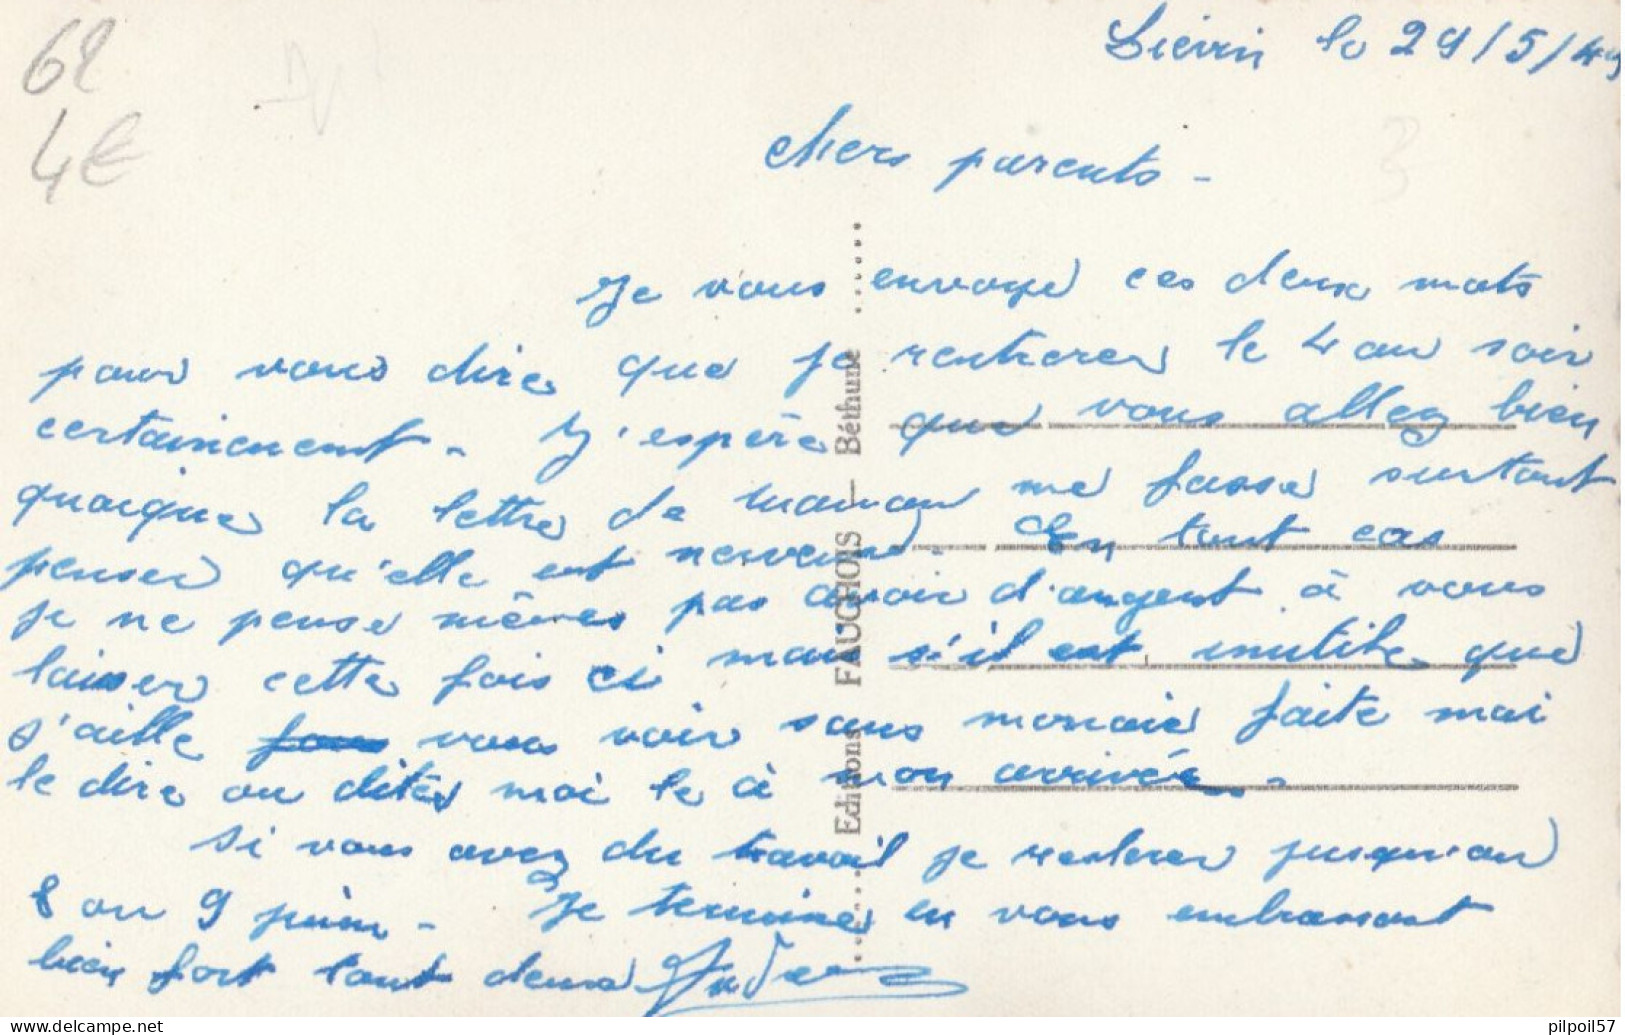 62
4€
Liévin le 29/5/49
chers parents -
Je vous envoye ces deux mots
pour vous dire que je rentrerer le 4 au soir
certainement - J'espère que vous allez bien
quoique la lettre de maman me fasse surtout
penser qu'elle est nerveuse. En tout cas
je ne pense mêmes pas avoir d'argent à vous
laisser cette fois ci mais s'il est inutile que
j'aille vous voir sans monaie faite moi
le dire ou dites moi le à mon arrivée.
Si vous avez du travail je resterer jusqu'au
8 ou 9 juin - Je termine en vous embrassant
bien fort tout deux
Editions FAUCHOIS — Béthune
www.delcampe.net
pilpoil57